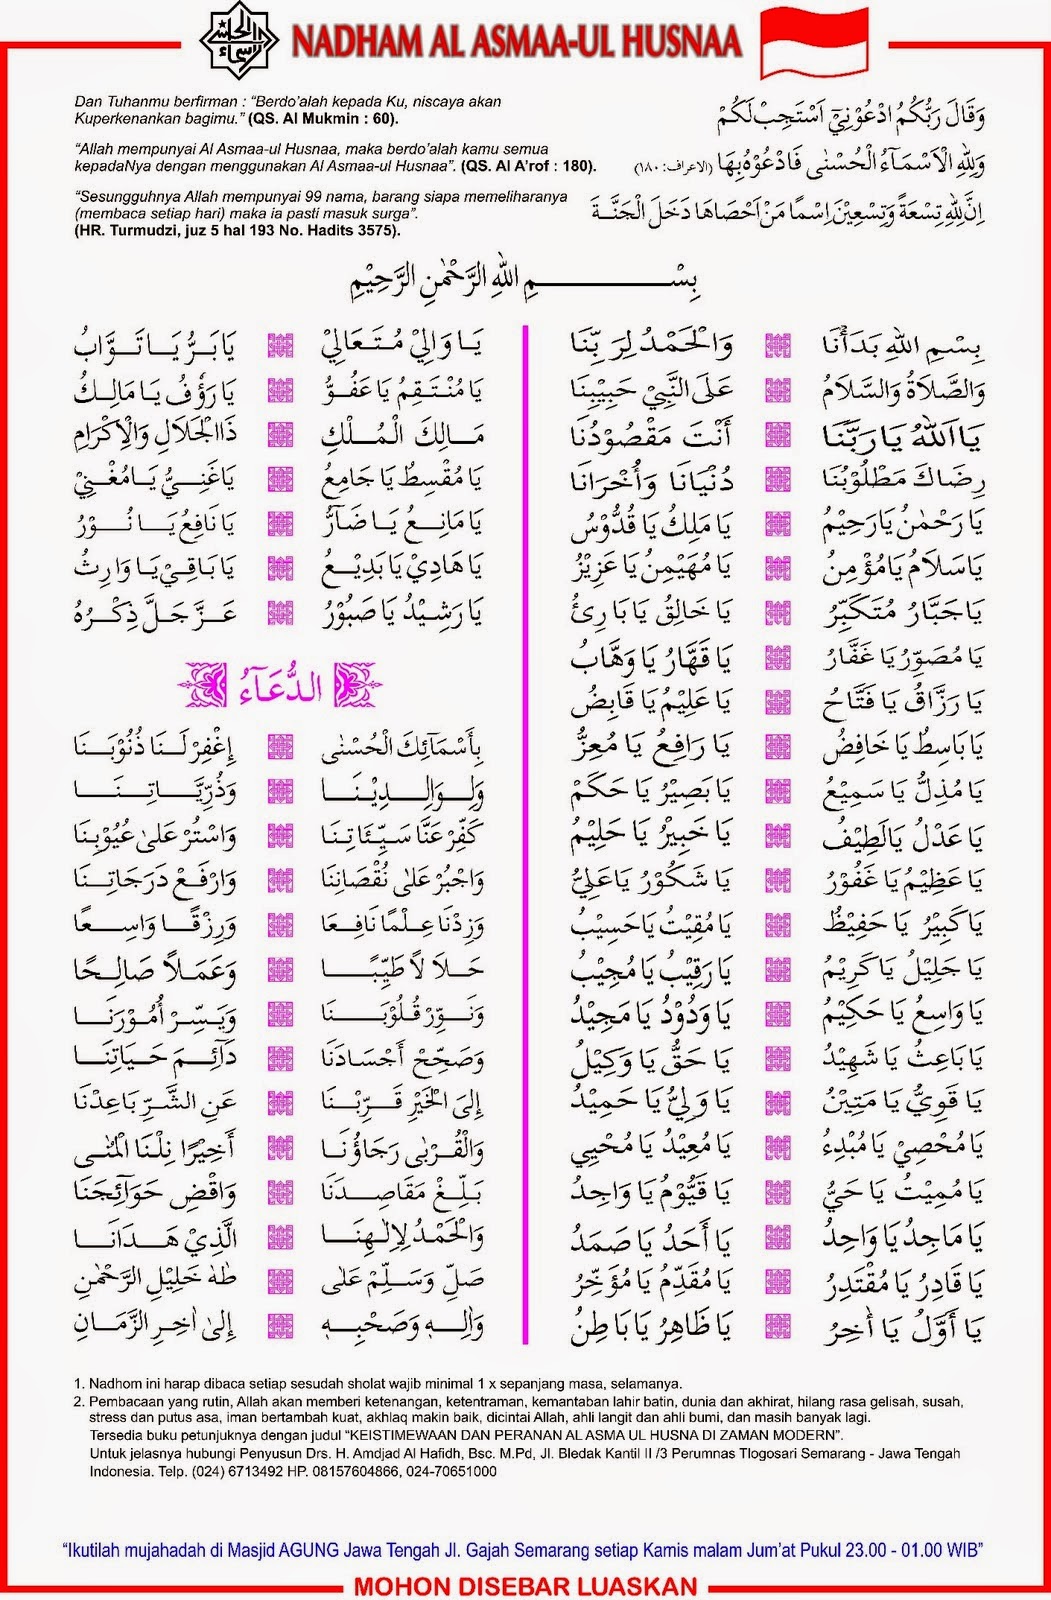 NADHAM AL ASMAA-UL HUSNAA
Dan Tuhanmu berfirman : “Berdo’alah kepada Ku, niscaya akan
Kuperkenankan bagimu.” (QS. Al Mukmin : 60).
وَقَالَ رَبُّكُمُ ادْعُوْنِيْٓ اَسْتَجِبْ لَكُمْ
“Allah mempunyai Al Asmaa-ul Husnaa, maka berdo’alah kamu semua
kepadaNya dengan menggunakan Al Asmaa-ul Husnaa”. (QS. Al A’rof : 180).
وَلِلّٰهِ الْاَسْمَآءُ الْحُسْنٰى فَادْعُوْهُ بِهَا (الاعراف: ١٨٠)
“Sesungguhnya Allah mempunyai 99 nama, barang siapa memeliharanya
(membaca setiap hari) maka ia pasti masuk surga”.
(HR. Turmudzi, juz 5 hal 193 No. Hadits 3575).
اِنَّ لِلّٰهِ تِسْعَةً وَتِسْعِيْنَ اِسْمًا مَنْ اَحْصَاهَا دَخَلَ الْجَنَّةَ
بِسْمِ اللهِ الرَّحْمٰنِ الرَّحِيْمِ
بِسْمِ اللهِ بَدَأْنَا وَالْحَمْدُ لِرَبِّنَا
وَالصَّلَاةُ وَالسَّلَامُ عَلَى النَّبِيْ حَبِيْبِنَا
يَا اَللهُ يَا رَبَّنَا أَنْتَ مَقْصُوْدُنَا
رِضَاكَ مَطْلُوْبُنَا دُنْيَانَا وَأُخْرَانَا
يَا رَحْمٰنُ يَا رَحِيْمُ يَا مَلِكُ يَا قُدُّوْسُ
يَا سَلَامُ يَا مُؤْمِنُ يَا مُهَيْمِنُ يَا عَزِيْزُ
يَا جَبَّارُ مُتَكَبِّرُ يَا خَالِقُ يَا بَارِئُ
يَا مُصَوِّرُ يَا غَفَّارُ يَا قَهَّارُ يَا وَهَّابُ
يَا رَزَّاقُ يَا فَتَّاحُ يَا عَلِيْمُ يَا قَابِضُ
يَا بَاسِطُ يَا خَافِضُ يَا رَافِعُ يَا مُعِزُّ
يَا مُذِلُّ يَا سَمِيْعُ يَا بَصِيْرُ يَا حَكَمْ
يَا عَدْلُ يَا لَطِيْفُ يَا خَبِيْرُ يَا حَلِيْمُ
يَا عَظِيْمُ يَا غَفُوْرُ يَا شَكُوْرُ يَا عَلِيُّ
يَا كَبِيْرُ يَا حَفِيْظُ يَا مُقِيْتُ يَا حَسِيْبُ
يَا جَلِيْلُ يَا كَرِيْمُ يَا رَقِيْبُ يَا مُجِيْبُ
يَا وَاسِعُ يَا حَكِيْمُ يَا وَدُوْدُ يَا مَجِيْدُ
يَا بَاعِثُ يَا شَهِيْدُ يَا حَقُّ يَا وَكِيْلُ
يَا قَوِيُّ يَا مَتِيْنُ يَا وَلِيُّ يَا حَمِيْدُ
يَا مُحْصِيْ يَا مُبْدِءُ يَا مُعِيْدُ يَا مُحْيِي
يَا مُمِيْتُ يَا حَيُّ يَا قَيُّوْمُ يَا وَاجِدُ
يَا مَاجِدُ يَا وَاحِدُ يَا أَحَدُ يَا صَمَدُ
يَا قَادِرُ يَا مُقْتَدِرُ يَا مُقَدِّمُ يَا مُؤَخِّرُ
يَا أَوَّلُ يَا أٰخِرُ يَا ظَاهِرُ يَا بَاطِنُ
يَا وَالِيْ مُتَعَالِيْ يَا بَرُّ يَا تَوَّابُ
يَا مُنْتَقِمُ يَا عَفُوُّ يَا رَؤُفُ يَا مَالِكُ
مَالِكَ الْمُلْكِ ذَا الْجَلَالِ وَالْاِكْرَامِ
يَا مُقْسِطُ يَا جَامِعُ يَا غَنِيُّ يَا مُغْنِيْ
يَا مَانِعُ يَا ضَآرُّ يَا نَافِعُ يَا نُوْرُ
يَا هَادِيْ يَا بَدِيْعُ يَا بَاقِيْ يَا وَارِثُ
يَا رَشِيْدُ يَا صَبُوْرُ عَزَّ جَلَّ ذِكْرُهُ
الدُّعَآءُ
بِأَسْمَائِكَ الْحُسْنٰى اِغْفِرْ لَنَا ذُنُوْبَنَا
وَلِوَالِدِيْنَا وَذُرِّيَّاتِنَا
كَفِّرْ عَنَّا سَيِّئَاتِنَا وَاسْتُرْ عَلٰى عُيُوْبِنَا
وَاجْبُرْ عَلٰى نُقْصَانِنَا وَارْفَعْ دَرَجَاتِنَا
وَزِدْنَا عِلْمًا نَافِعَا وَرِزْقًا وَاسِعًا
حَلَالًا طَيِّبًا وَعَمَلًا صَالِحًا
وَنَوِّرْ قُلُوْبَنَا وَيَسِّرْ أُمُوْرَنَا
وَصَحِّحْ أَجْسَادَنَا دَآئِمَ حَيَاتِنَا
إِلَى الْخَيْرِ قَرِّبْنَا عَنِ الشَّرِّ بَاعِدْنَا
وَالْقُرْبٰى رَجَاؤُنَا أَخِيْرًا نِلْنَا الْمُنٰى
بَلِّغْ مَقَاصِدَنَا وَاقْضِ حَوَائِجَنَا
وَالْحَمْدُ لِاِلٰهِنَا الَّذِيْ هَدَانَا
صَلِّ وَسَلِّمْ عَلٰى طٰهٰ خَلِيْلِ الرَّحْمٰنِ
وَاٰلِهٖ وَصَحْبِهٖ إِلٰى اٰخِرِ الزَّمَانِ
1. Nadhom ini harap dibaca setiap sesudah sholat wajib minimal 1 x sepanjang masa, selamanya.
2. Pembacaan yang rutin, Allah akan memberi ketenangan, ketentraman, kemantaban lahir batin, dunia dan akhirat, hilang rasa gelisah, susah,
stress dan putus asa, iman bertambah kuat, akhlaq makin baik, dicintai Allah, ahli langit dan ahli bumi, dan masih banyak lagi.
Tersedia buku petunjuknya dengan judul “KEISTIMEWAAN DAN PERANAN AL ASMA UL HUSNA DI ZAMAN MODERN”.
Untuk jelasnya hubungi Penyusun Drs. H. Amdjad Al Hafidh, Bsc. M.Pd, Jl. Bledak Kantil II /3 Perumnas Tlogosari Semarang - Jawa Tengah
Indonesia. Telp. (024) 6713492 HP. 08157604866, 024-70651000
“Ikutilah mujahadah di Masjid AGUNG Jawa Tengah Jl. Gajah Semarang setiap Kamis malam Jum’at Pukul 23.00 - 01.00 WIB”
MOHON DISEBAR LUASKAN